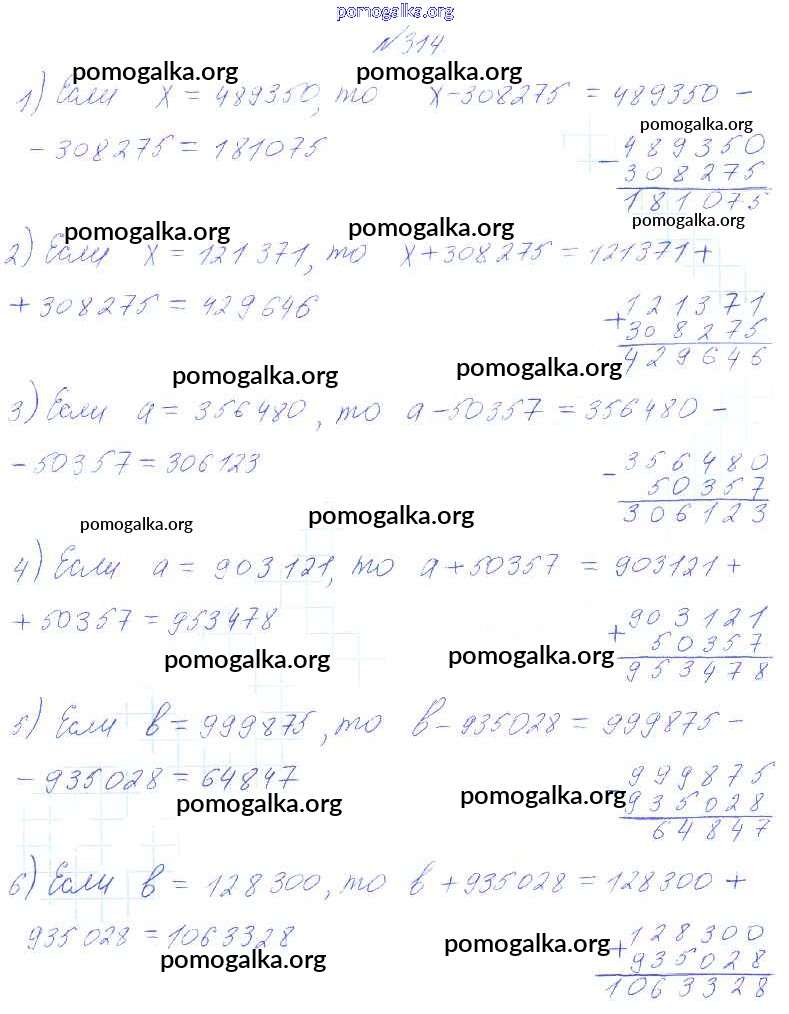 pomogalka.org
№314
pomogalka.org pomogalka.org
1) Если x = 489350, то x-308275 = 489350 -
pomogalka.org
- 308275 = 181075
- 489350
308275
181075
pomogalka.org pomogalka.org pomogalka.org
2) Если x = 121371, то x+308275 = 121371 +
+ 308275 = 429646
+ 121371
308275
429646
pomogalka.org pomogalka.org
3) Если a = 356480, то a-50357 = 356480 -
- 50357 = 306123
- 356480
50357
306123
pomogalka.org pomogalka.org
4) Если a = 903121, то a+50357 = 903121 +
+ 50357 = 953478
+ 903121
50357
953478
pomogalka.org pomogalka.org
5) Если в = 999875, то в - 935028 = 999875 -
- 935028 = 64847
- 999875
935028
64847
pomogalka.org pomogalka.org
6) Если в = 128300, то в + 935028 = 128300 +
935028 = 1063328
+ 128300
935028
1063328
pomogalka.org pomogalka.org